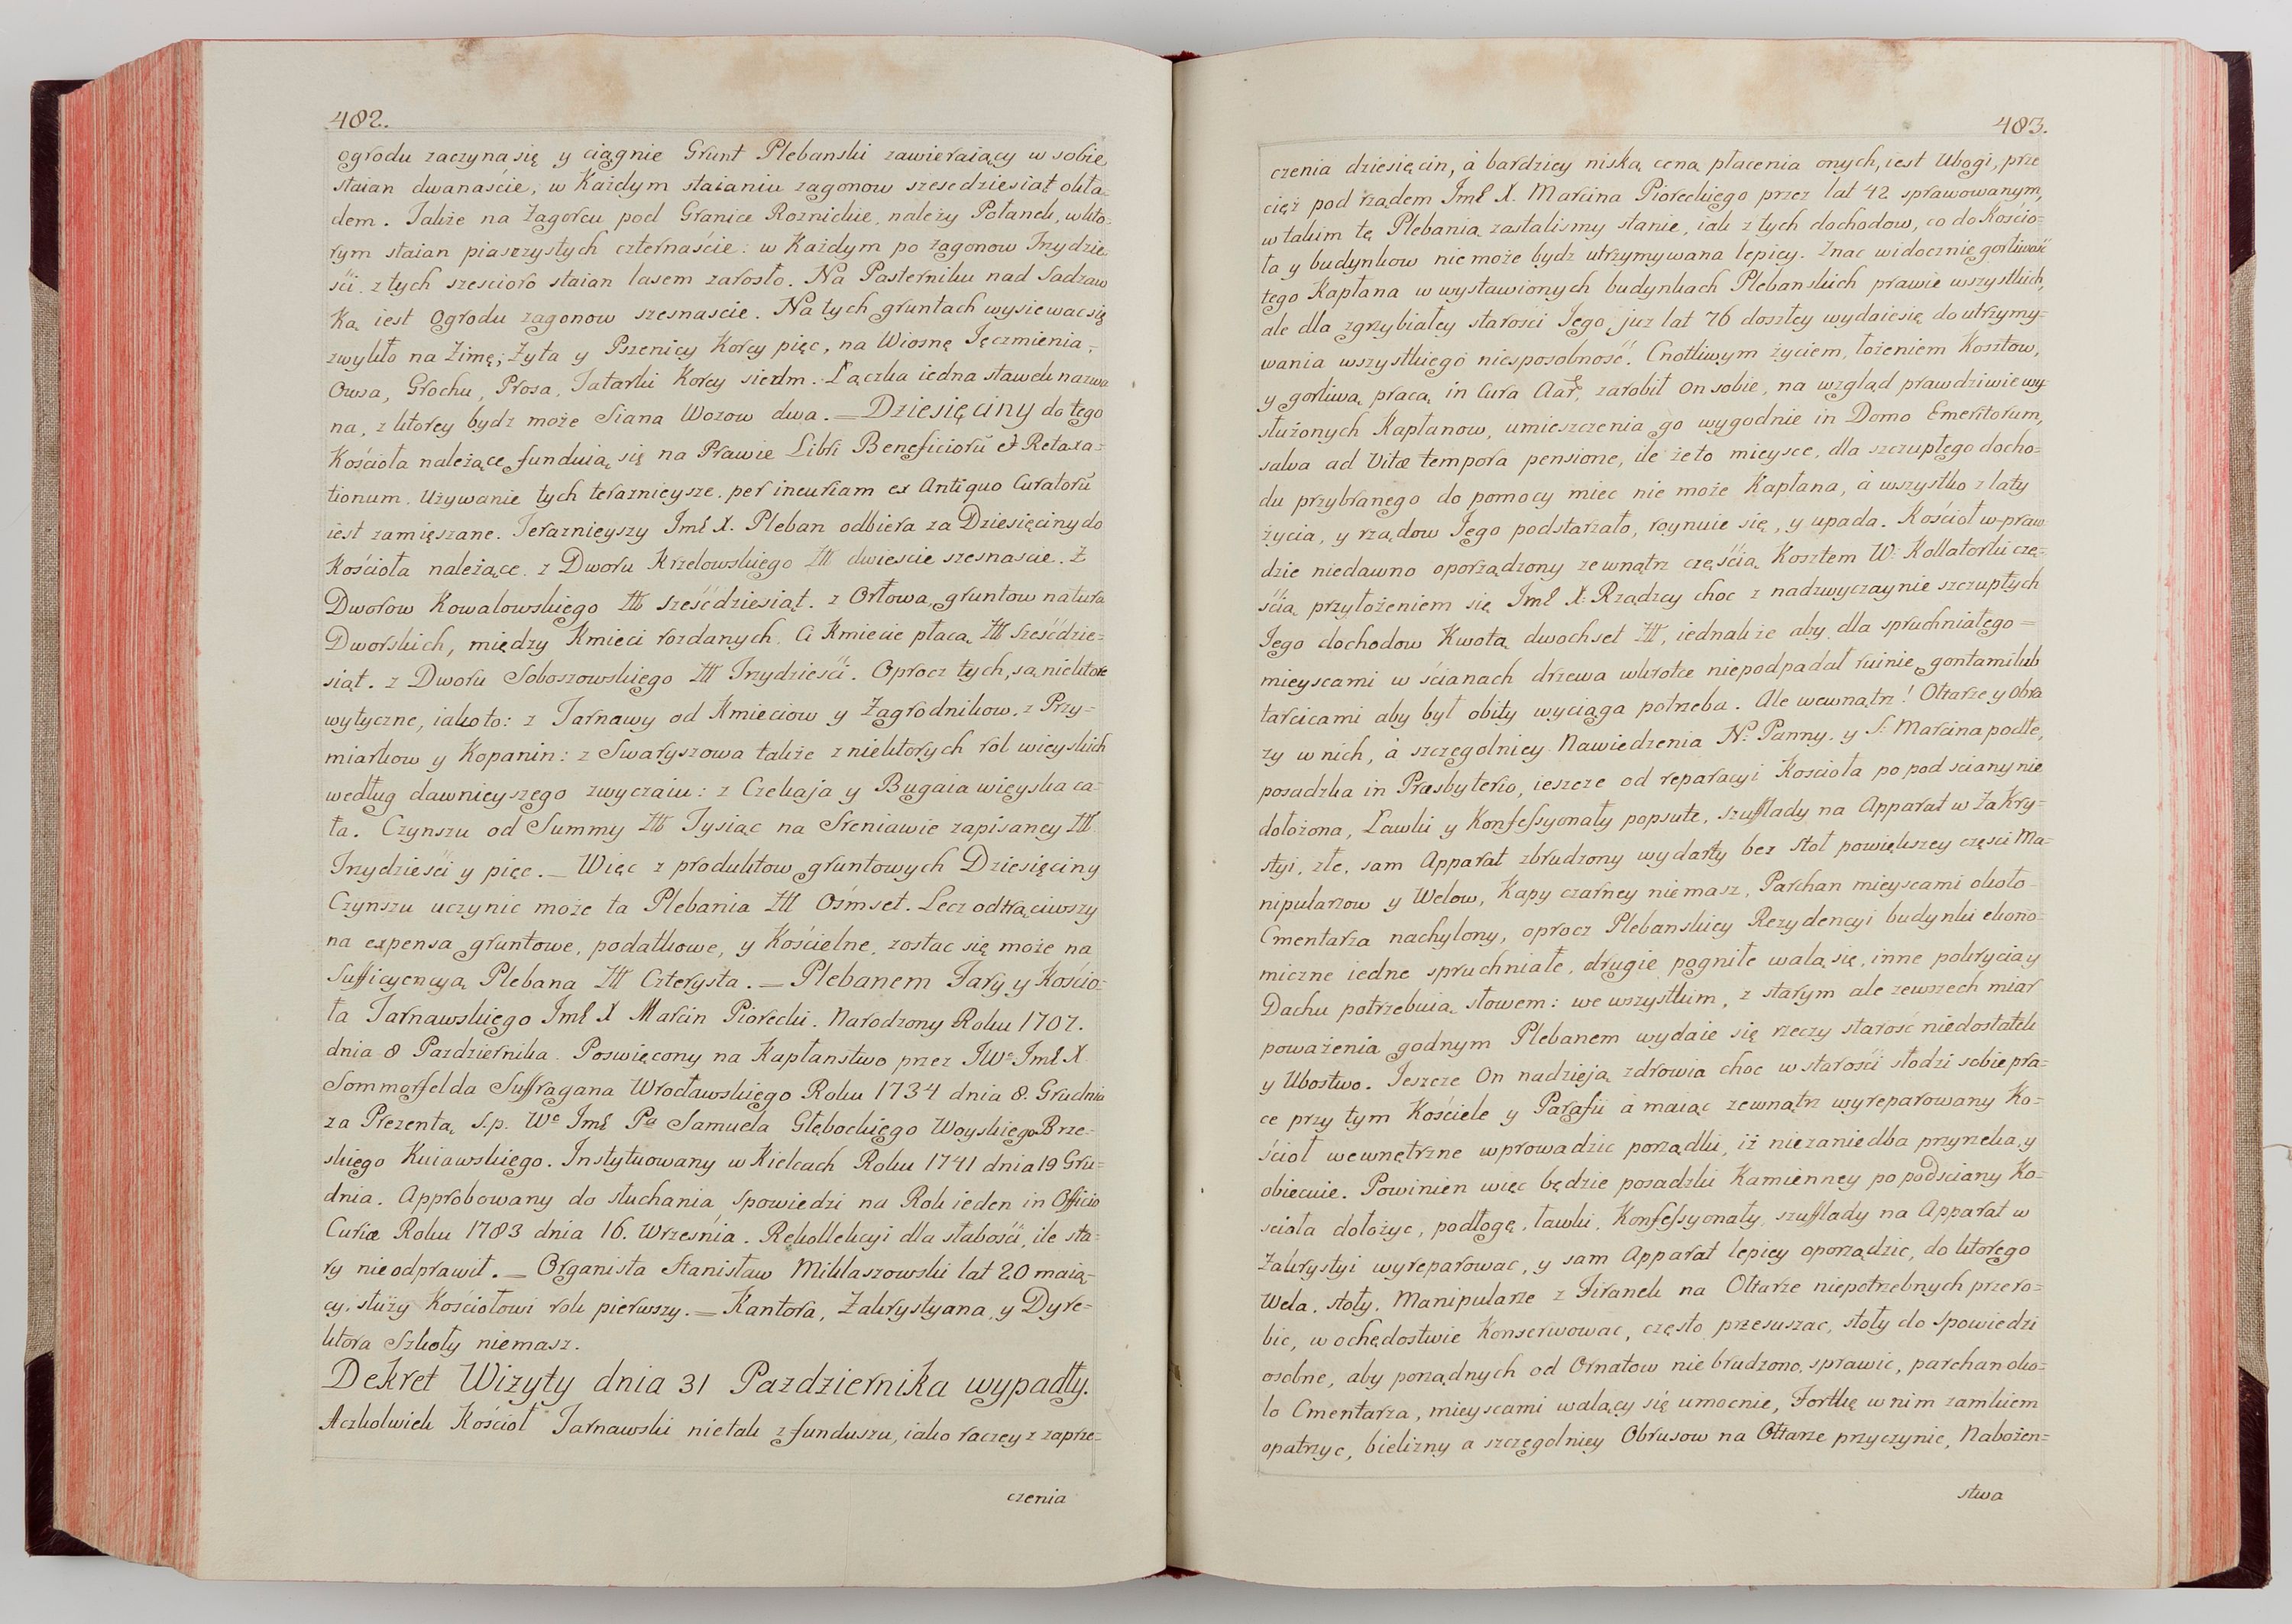 482.
ogrodu zaczyna się y ciągnie Grunt Plebanski zawieraiący w sobie
staian dwanaście, w Każdym staianiu zagonow szescdziesiat okła-
dem. Także na Zagorcu pod Granice Roznickie, należy Połanek, w kto-
rym staian piasczystych czternaście: w Każdym po zagonow Trzydzie-
ści. z tych szescioro staian lasem zarosło. Na Pasterniku nad Sadzaw
Ką iest Ogrodu zagonow szesnascie. Na tych gruntach wysiewac się
zwykło na Zimę; Zyta y Pszenicy Korcy pięc, na Wiosnę Jęczmienia,
Owsa, Grochu, Prosa, Tatarki Korcy siedm. Łączka iedna stawek nazwa
na, z ktorey bydz może Siana Wozow dwa. = Dziesięciny do tego
Kościoła należące funduią się na Prawie Libri Beneficiorū et Retaxa-
tionum. Używanie tych teraznieysze. per incuriam ex Antiquo Curatorū
iest zamięszane. Teraznieyszy Jmć X. Pleban odbiera za Dziesięciny do
Kościoła należące. z Dworu Krzelowskiego Złł dwiescie szesnascie. Z
Dworow Kowalowskiego Złł sześćdziesiąt. z Orłowa, gruntow natura
Dworskich, między Kmieci rozdanych. A Kmiecie płacą Złł sześćdzie-
siąt. z Dworu Soboszowskiego Złł Trzydzieści. Oprocz tych, są niektore
wytyczne, iako to: z Tarnawy od Kmieciow y Zagrodnikow. z Przy-
miarkow y Kopanin: z Swaryszowa także z niektorych rol wieyskich
według dawnieyszego zwyczaiu: z Czekaja y Bugaia więyska ca-
ła. Czynszu od Summy Złł Tysiąc na Sreniawie zapisaney Złł.
Trzydzieści y pięc. _ Więc z produktow gruntowych Dziesięciny
Czynszu uczynic może ta Plebania Złł Ośmset. Lecz odtrąciwszy
na expensa gruntowe, podatkowe, y Kościelne, zostac się może na
Sufficyencyą Plebana Złł Czterysta. = Plebanem Fary y Kościo-
ła Tarnawskiego Jmć X Marcin Piorecki. Narodzony Roku 1707.
dnia 8 Pazdziernika. Poswięcony na Kapłanstwo przez JWo Jmć X.
Sommerfelda Suffragana Wrocławskiego Roku 1734 dnia 8. Grudnia
za Prezentą S.p. Wo Jmć Pa Samuela Głębockiego Woyskiego Brze-
skiego Kuiawskiego. Instytuowany w Kielcach Roku 1741 dnia 19 Gru-
dnia. Approbowany do słuchania Spowiedzi na Rok ieden in Officio
Curiæ Roku 1783 dnia 16. Wrzesnia. Rekollekcyi dla słabości, ile sta-
ry nieodprawił. = Organista Stanisław Miklaszowski lat 20 maią-
cy, służy Kościołowi rok pierwszy. = Kantora, Zakrystyana, y Dyre-
ktora Szkoły niemasz.
Dekret Wizyty dnia 31 Pazdziernika wypadły.
Aczkolwiek Kościoł Tarnawski nietak z funduszu, iako raczey z zaprze-
czenia
483.
czenia dziesięcin, á bardziey niską ceną płacenia onych, iest Ubogi, prze
cięż pod rządem Jmć X. Marcina Piореckiego przez lat 42 sprawowanym,
w takim tę Plebanią zastalismy stanie, iak z tych dochodow, co do Kościo-
ła y budynkow nie może bydz utrzymywana lepiey. Znac widocznie gorliwość
tego Kapłana w wystawionych budynkach Plebanskich prawie wszystkich,
ale dla zgrzybiałey starosci Jego juz lat 76 doszłey wydaie się do utrzymy-
wania wszystkiego niesposobność. Cnotliwym życiem, łożeniem Kosztow,
y gorliwą pracą in Cura zarobił on sobie, na wzgląd prawdziwie wy-
służonych Kapłanow, umieszczenia go wygodnie in Domo Emeritorum,
salva ad Vitæ tempora pensione, ile że to mieysce, dla szczupłego docho-
du przybranego do pomocy miec nie może Kapłana, á wszystko z laty
życia, y rządow Jego podstarzało, roynuie się, y upada. Kościoł w praw
dzie niedawno oporządzony zewnątrz częścią Kosztem W: Kollatorki czę-
ścią przyłożeniem się Jmć X: Rządzcy choc z nadzwyczaynie szczupłych
Jego dochodow Kwotą dwochset Złł, iednakże aby dla spruchniałego =
mieyscami w ścianach drzewa wkrotce niepodpadał ruinie, gontami lub
tarcicami aby był obity wyciąga potrzeba. Ale wewnątrz! Ołtarze y Obra
zy w nich, á szczegolniey Nawiedzenia N. Panny. y S. Marcina podłe,
posadzka in Præsbyterio, ieszcze od reparacyi Kosciola po pod sciany nie
dołożona, Ławki y Konfessyonały popsute, szufflady na Apparat w Zakry-
styi, złe, sam Apparat zbrudzony wydarty bez Stoł powiększey części Ma-
nipularzow y Welow, Kapy czarney niemasz, Parchan mieyscami około
Cmentarza nachylony, oprocz Plebanskiey Rezydencyi budynki ekono-
miczne iedne spruchniałe, drugie pogniłe walą się, inne pokrycia y
Dachu potrzebuią, słowem: we wszystkim, z starym ale zewszech miar
poważenia godnym Plebanem wydaie się rzeczy starość niedostatek
y Ubostwo. Jeszcze On nadzieją zdrowia choc w starości słodzi sobie pra-
ce przy tym Kościele y Parafii á maiąc zewnątrz wyreparowany Ko-
ścioł wewnętrzne wprowadzic porządki, iż niezaniedba przyrzeka, y
obiecuie. Powinien więc będzie posadzki Kamienney po podsciany Ko-
sciola dołożyc, podłogę, ławki, Konfessyonały, szufflady na Apparat w
Zakrystyi wyreparowac, y sam Apparat lepiey oporządzic, do ktorego
Wela, stoły, Manipularze z Firanek na Ołtarze niepotrzebnych przero-
bic, w ochędostwie Konserwowac, często przesuszac, stoły do Spowiedzi
osobne, aby porządnych od Ornatow nie brudzono, sprawic, parchan oko-
lo Cmentarza, mieyscami walący się umocnie, Fortkę w nim zamkiem
opatrzyc, bielizny a szczegolniey Obrusow na Ołtarze przyczynic, Nabożen-
stwa